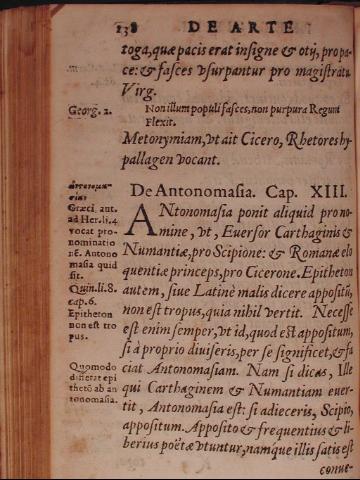 138 DE ARTE
toga, quæ pacis erat insigne & otij, pro pa-
ce: & fasces vsurpantur pro magistratu
Virg.
Georg. 2.
Non illum populi fasces, non purpura Regum
Flexit.
Metonymiam, vt ait Cicero, Rhetores hy-
pallagen vocant.
De Antonomasia. Cap. XIII.
Græci. aut.
ad Her. li. 4
vocat pro-
nominatio
nẽ. Antono
masia quid
sit.
Quin. li. 8.
cap. 6.
Epitheton
non est tro
pus.
Quomodo
differat epi
thetõ ab an
tonomasia.
ANtonomasia ponit aliquid pro no-
mine, vt, Euersor Carthaginis &
Numantiæ, pro Scipione: & Romanæ elo
quentiæ princeps, pro Cicerone. Epitheton
autem, siue Latinè malis dicere appositũ,
non est tropus, quia nihil vertit. Necesse
est enim semper, vt id, quod est appositum,
si à proprio diuiseris, per se significet, & fa
ciat Antonomasiam. Nam si dicas, Ille
qui Carthaginem & Numantiam euer-
tit, Antonomasia est: si adieceris, Scipio,
appositum. Apposito & frequentius & li-
berius poëtæ vtuntur, namque illis satis est
conue-